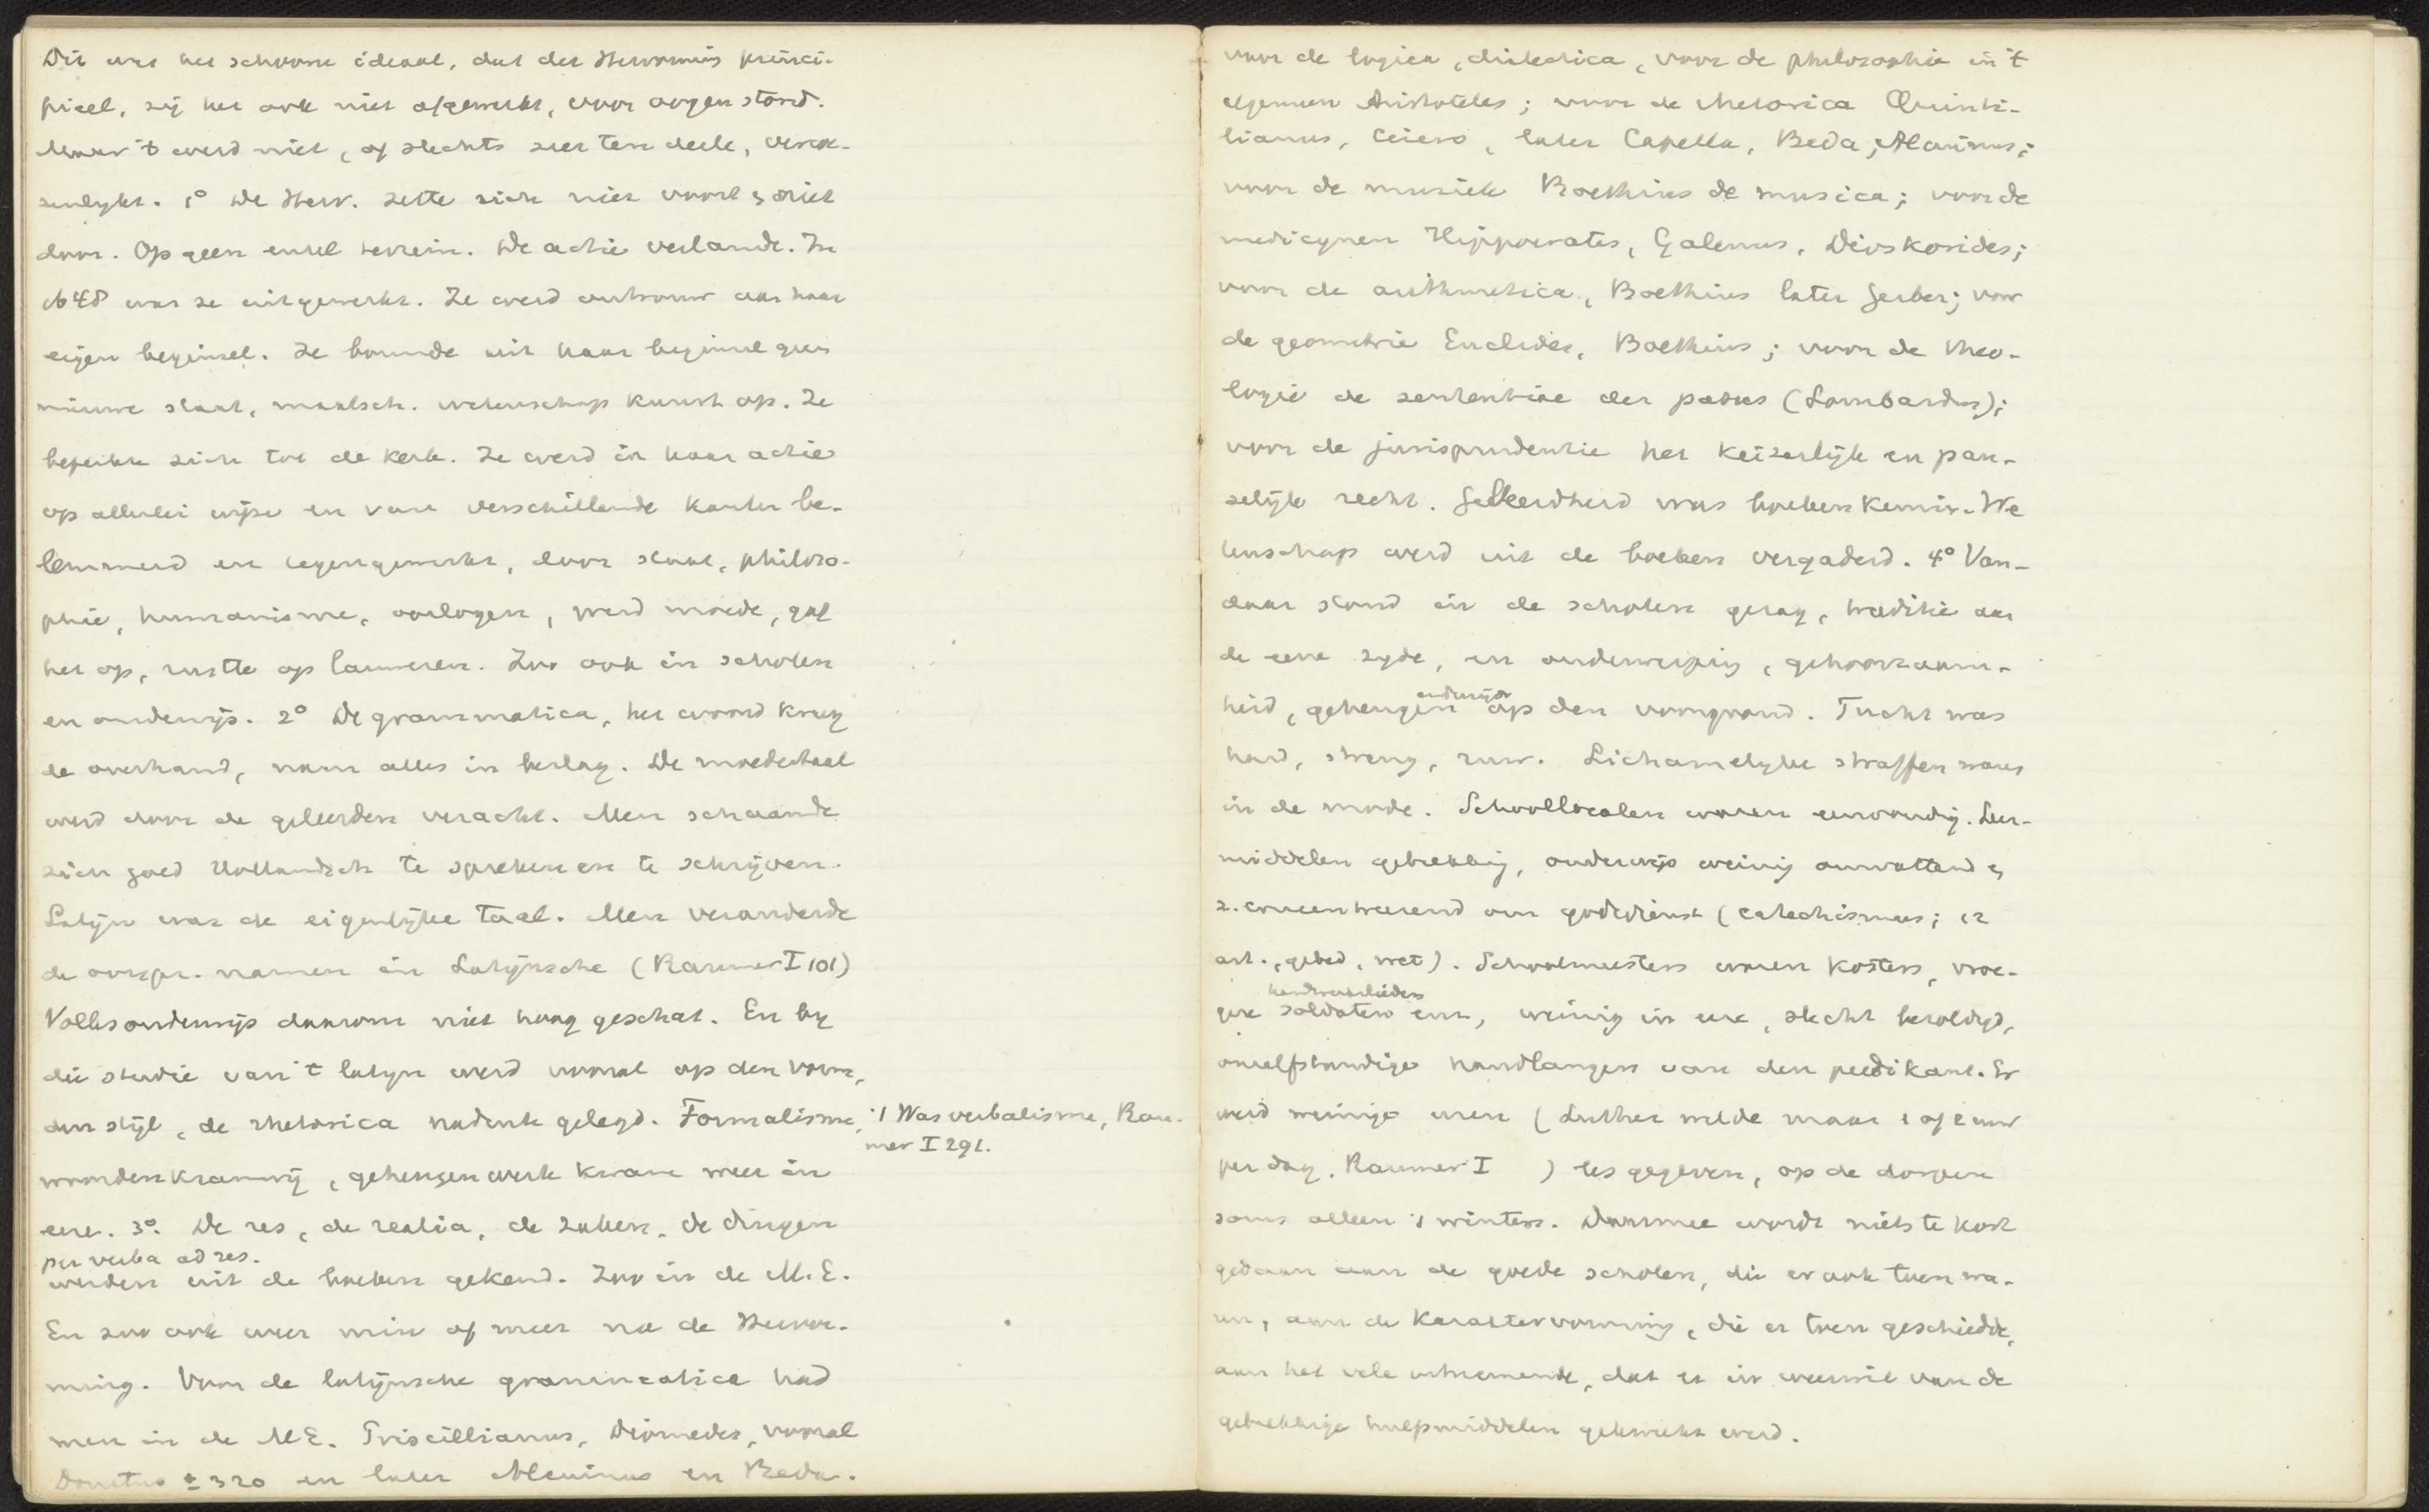 Dit was het schoone ideaal, dat der Hervorming princi-
pieel, zij het ook niet afgewerkt, voor oogen stond.
Maar 't werd niet, of slechts zeer ten deele, verwe-
zenlykt. 1° De Herv. zette zich niet voort & niet
door. Op geen enkel terrein. De actie verlamde. In
1648 was ze uitgewerkt. Ze werd ontrouw aan haar
eigen beginsel. Ze bouwde uit haar beginsel geen
nieuwe staat, maatsch. wetenschap kunst op. Ze
beperkte zich tot de kerk. Ze werd in haar actie
op allerlei wijze en van verschillende kanten be-
lemmerd en tegengewerkt, door staat, philoso-
phie, humanisme, oorlogen, werd moede, gaf
het op, rustte op lauweren. Zoo ook in scholen
en onderwijs. 2° De grammatica, het woord kreeg
de overhand, nam alles in beslag. De moedertaal
werd door de geleerden veracht. Men schaamde
zich goed Hollandsch te spreken en te schrijven.
Latijn was de eigenlijke taal. Men veranderde
de oorspr. namen in Latijnsche (Raumer I 101)
Volksonderwijs daarom niet hoog geschat. En by
die studie van 't latijn werd vooral op den vorm,
den stijl, de rhetorica nadruk gelegd. Formalisme,
't Was verbalisme, Rau-
mer I 291.
woordenkramerij, geheugenwerk kwam weer in
eere. 3°. De res, de realia, de zaken, de dingen
per verba ad res.
werden uit de boeken gekend. Zoo in de M.E.
En zoo ook weer min of meer na de Hervor-
ming. Voor de latijnsche grammatica had
men in de ME. Priscillianus, Diomedes, vooral
Donatus ± 320 en later Alcuinus en Beda.
voor de logica, dialectica, voor de philosophie in 't
algemeen Aristoteles; voor de rhetorica Quinti-
lianus, Cicero, later Capella, Beda, Alcuinus;
voor de muziek Boethius de musica; voor de
medicynen Hippocrates, Galenus, Dioskorides;
voor de arithmetica, Boethius later Gerber; voor
de geometrie Euclides, Boethius; voor de theo-
logie de sententiae der patres (Lombardus);
voor de jurisprudentie het keizerlijk en pau-
selijk recht. Geleerdheid was boekenkennis. We
tenschap werd uit de boeken vergaderd. 4° Van-
daar stond in de scholen gezag, traditie aan
de eene zyde, en onderwerping, gehoorzaam-
heid, geheugen anderzijds op den voorgrond. Tucht was
hard, streng, ruw. Lichamelyke straffen waren
in de mode. Schoollocalen waren eenvoudig. Leer-
middelen gebrekkig, onderwijs weinig omvattend &
z. concentreerend om godsdienst (catechismus; 12
art., gebed, wet). Schoolmeesters waren kosters, vroe-
gere soldaten handwerkslieden enz, weinig in eere, slecht bezoldigd,
onzelfstandige handlangers van den predikant. Er
werd weinige uren (Luther wilde maar 1 of 2 uur
per dag. Raumer I ) les gegeven, op de dorpen
soms alleen 's winters. Daarmee wordt niets te kort
gedaan aan de goede scholen, die er ook toen wa-
ren, aan de karaktervorming, die er toen geschiedde,
aan het vele uitnemende, dat er in weerwil van de
gebrekkige hulpmiddelen gekweekt werd.